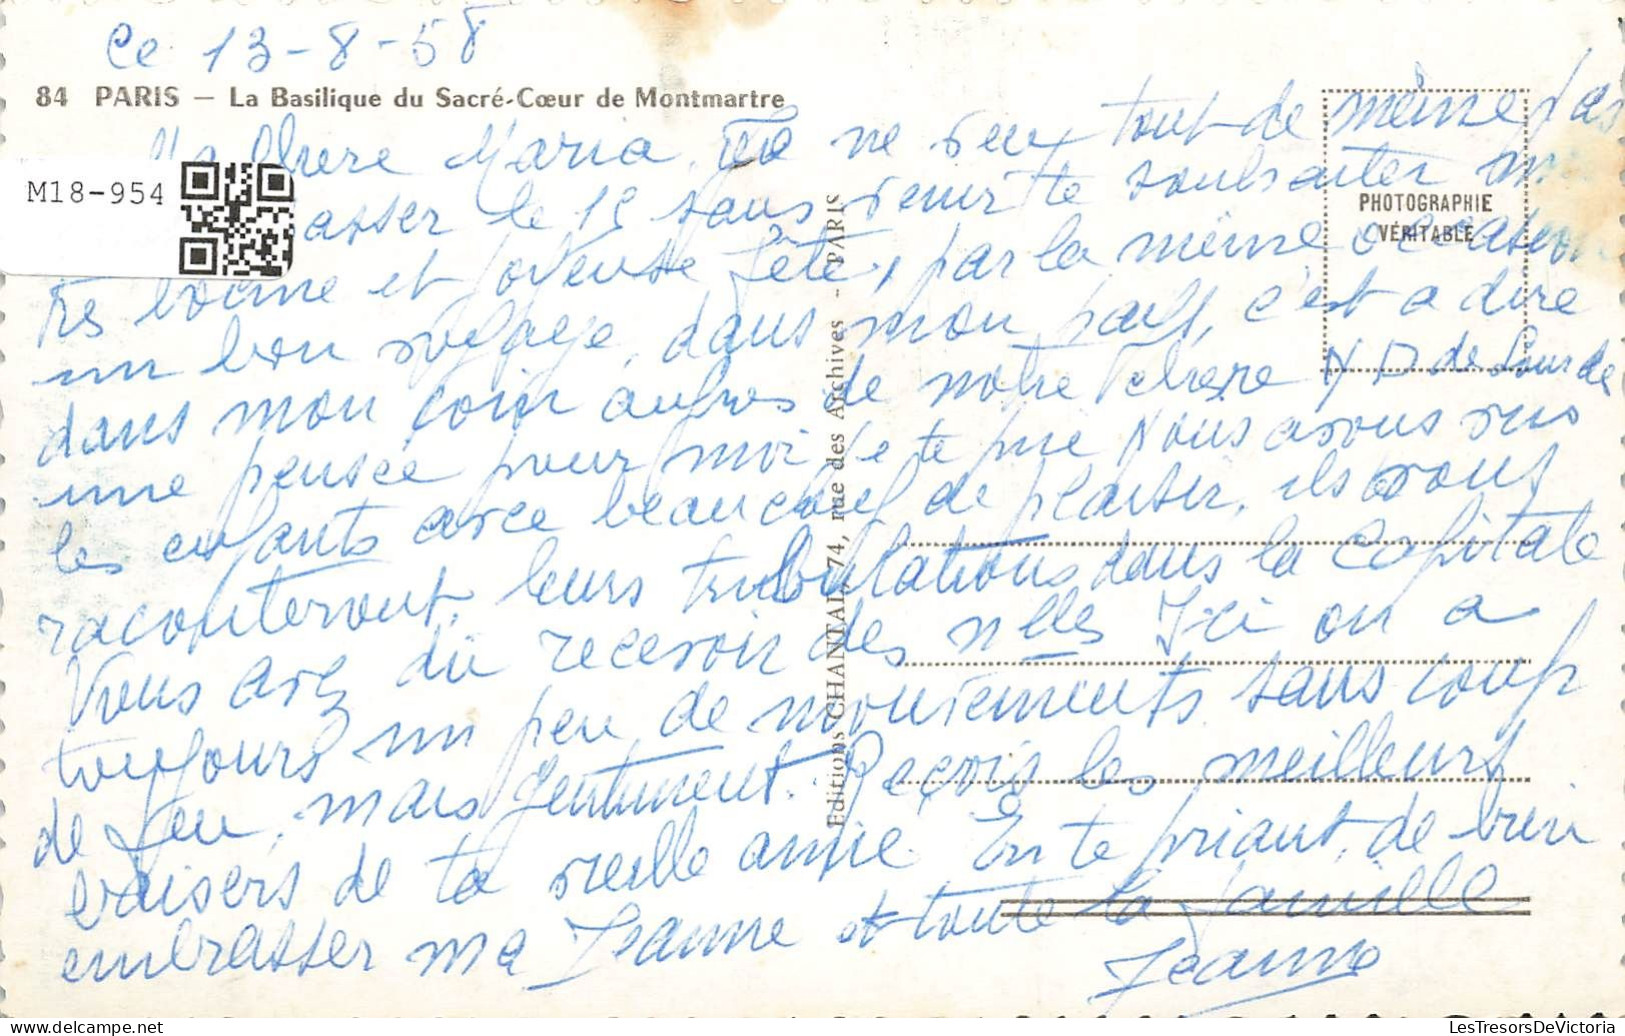 Ce 13-8-58
84 PARIS – La Basilique du Sacré-Cœur de Montmartre
Ma Chere Maria, Je ne veux tout de même pas
M18-954
asser le 15 sans venir te souhaiter une
PHOTOGRAPHIE
VÉRITABLE
très bonne et joyeuse fête, par la même occasion
un bon voyage, dans mon pays, c'est a dire
dans mon coin auprès de notre chere N D de Lourde
une pensée pour moi je te prie Nous avons vus
les enfants avec beaucoup de plaisir, ils vous
raconteront leurs tribulations dans la Capitale
Vous avez dû recevoir des nlles Ici on a
toujours un peu de mouvements sans coup
de feu, mais gentiment. Reçois les meilleurs
baisers de ta vieille amie. En te priant, de bien
embrasser ma Jeanne et toute la famille
Jeanne
Editions CHANTAL, 74, rue des Archives - PARIS
LesTresorsDeVictoria